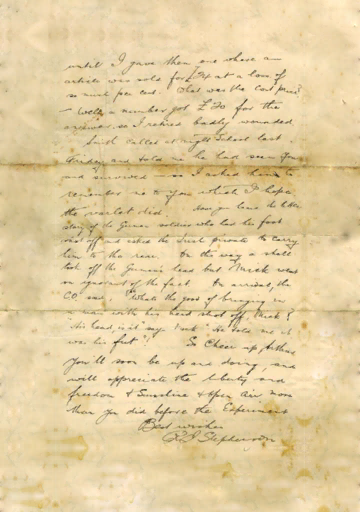 until I gave them one where an
article was sold for £ at a loss of
so much per cent. What was the Cost price?
— Well, a number got £ 70 for the
answer so I retired badly wounded
Smith called at night School last
Friday and told me he had seen you
and survived — so I asked him to
remember me to you which I hope
the varlet did. Have you heard the
story of the German soldier who had his foot
shot off and asked the Irish private to carry
him to the rear. On the way a shell
took off the German's head but Mick went
on ignorant of the fact. On arrival, the
C.O. said. "What's the good of bringing in
a man with his head shot off, Mick?
His head, is it" say "He told me it
was his feet"! So Cheer up, Arthur
You'll soon be up and doing, and
will appreciate the liberty and
freedom & Sunshine & Open air more
than you did before the Experiment
Best wishes
Stephenson